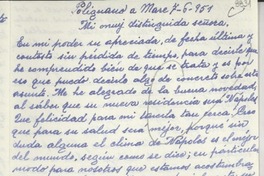 Polignano a Mare 7-6-951
Mi muy distinguida señora,
En mi poder su apreciada, de fecha última y
contesto sin pérdida de tiempo, para decirle que
he comprendido bien de que se trata y es posi-
ble que puedo decirle algo de concreto sobre este
asunto. Me he alegrado de la buena novedad
al saber que su nueva residencia será Nápoles
Que felicidad para mi tenerla tan cerca. Creo
que para su salud será mejor, porque sin
duda alguna el clima de Nápoles es el mejor
del mundo, según como se dice; en particular
modo para nosotros que estamos acostumbra